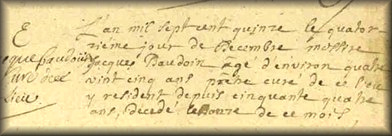 E
L'an mil sept cent quinze le quator
zieme jour de Decembre messire
Jacques Baudoin agé d'environ quatre
vint cinq ans prêtre curé de ce lieu
y resident depuis cinquante quatre
ans, decedé le onze de ce mois
Jacques Baudoin
curé de ce
lieu